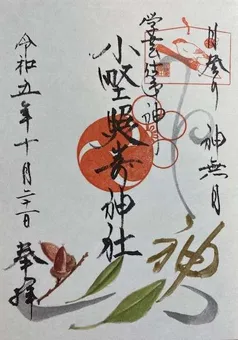 月詣り 神無月
学芸の神
小野照崎神社
令和五年十月二十一日
奉拝
神